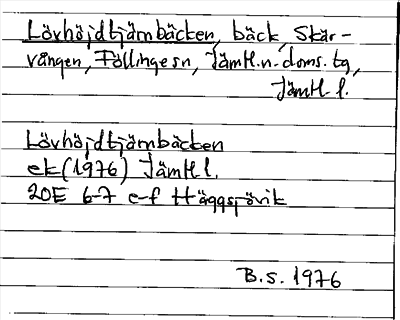 Lövhöjdtjärnbäcken, bäck, Skär-
vången, Föllinge sn, Jämtl.n.doms.tg,
Jämtl l.
Lövhöjdtjärnbäcken
ek (1976) Jämtl l.
20E 6-7 e-f Häggsjövik
B.S. 1976